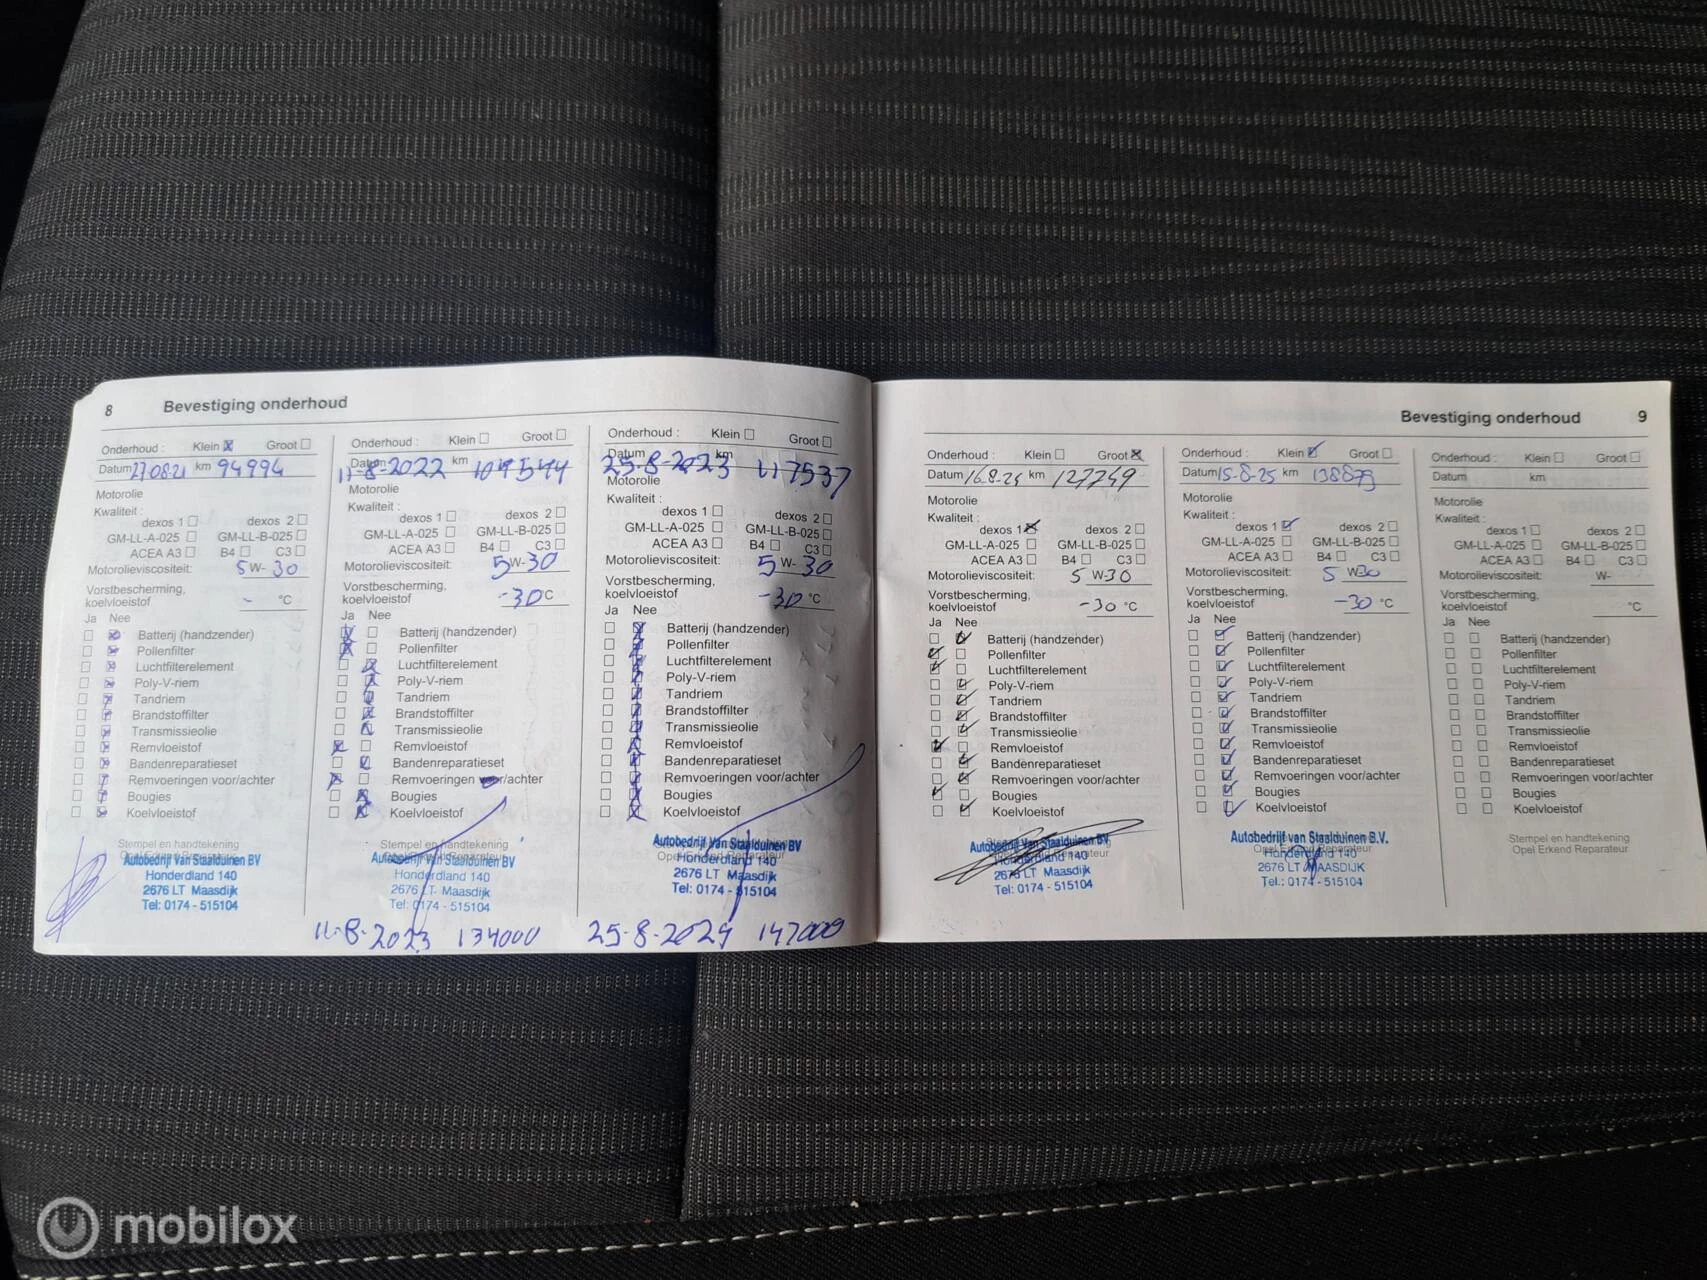 8 Bevestiging onderhoud
Onderhoud : Klein Groot
Datum 27-08-21 km 94994
Motorolie
Kwaliteit :
dexos 1 dexos 2
GM-LL-A-025 GM-LL-B-025
ACEA A3 B4 C3
Motorolieviscositeit: 5 W- 30
Vorstbescherming,
koelvloeistof - °C
Ja Nee
Batterij (handzender)
Pollenfilter
Luchtfilterelement
Poly-V-riem
Tandriem
Brandstoffilter
Transmissieolie
Remvloeistof
Bandenreparatieset
Remvoeringen voor/achter
Bougies
Koelvloeistof
Stempel en handtekening
Autobedrijf Van Staalduinen BV
Honderdland 140
2676 LT Maasdijk
Tel: 0174 - 515104
Onderhoud : Klein Groot
Datum 11-8-2022 km 107544
Motorolie
Kwaliteit :
dexos 1 dexos 2
GM-LL-A-025 GM-LL-B-025
ACEA A3 B4 C3
Motorolieviscositeit: 5 W- 30
Vorstbescherming,
koelvloeistof -30 °C
Ja Nee
Batterij (handzender)
Pollenfilter
Luchtfilterelement
Poly-V-riem
Tandriem
Brandstoffilter
Transmissieolie
Remvloeistof
Bandenreparatieset
Remvoeringen voor/achter
Bougies
Koelvloeistof
Stempel en handtekening
Autobedrijf Van Staalduinen BV
Honderdland 140
2676 LT Maasdijk
Tel: 0174 - 515104
11-8-2023 134000
Onderhoud : Klein Groot
Datum 25-8-2023 km 117537
Motorolie
Kwaliteit :
dexos 1 dexos 2
GM-LL-A-025 GM-LL-B-025
ACEA A3 B4 C3
Motorolieviscositeit: 5 W- 30
Vorstbescherming,
koelvloeistof -30 °C
Ja Nee
Batterij (handzender)
Pollenfilter
Luchtfilterelement
Poly-V-riem
Tandriem
Brandstoffilter
Transmissieolie
Remvloeistof
Bandenreparatieset
Remvoeringen voor/achter
Bougies
Koelvloeistof
Autobedrijf Van Staalduinen BV
Opel Erkend Reparateur
Honderdland 140
2676 LT Maasdijk
Tel: 0174 - 515104
25-8-2024 147000
Bevestiging onderhoud 9
Onderhoud : Klein Groot
Datum 16-8-24 km 127749
Motorolie
Kwaliteit :
dexos 1 dexos 2
GM-LL-A-025 GM-LL-B-025
ACEA A3 B4 C3
Motorolieviscositeit: 5 W-30
Vorstbescherming,
koelvloeistof -30 °C
Ja Nee
Batterij (handzender)
Pollenfilter
Luchtfilterelement
Poly-V-riem
Tandriem
Brandstoffilter
Transmissieolie
Remvloeistof
Bandenreparatieset
Remvoeringen voor/achter
Bougies
Koelvloeistof
Autobedrijf Van Staalduinen BV
Honderdland 140
2676 LT Maasdijk
Tel: 0174 - 515104
Onderhoud : Klein Groot
Datum 15-8-25 km 138873
Motorolie
Kwaliteit :
dexos 1 dexos 2
GM-LL-A-025 GM-LL-B-025
ACEA A3 B4 C3
Motorolieviscositeit: 5 W-30
Vorstbescherming,
koelvloeistof -30 °C
Ja Nee
Batterij (handzender)
Pollenfilter
Luchtfilterelement
Poly-V-riem
Tandriem
Brandstoffilter
Transmissieolie
Remvloeistof
Bandenreparatieset
Remvoeringen voor/achter
Bougies
Koelvloeistof
Autobedrijf van Staalduinen B.V.
Opel Erkend Reparateur
Honderdland 140
2676 LT MAASDIJK
Tel.: 0174 - 515104
Onderhoud : Klein Groot
Datum km
Motorolie
Kwaliteit :
dexos 1 dexos 2
GM-LL-A-025 GM-LL-B-025
ACEA A3 B4 C3
Motorolieviscositeit: W-
Vorstbescherming,
koelvloeistof °C
Ja Nee
Batterij (handzender)
Pollenfilter
Luchtfilterelement
Poly-V-riem
Tandriem
Brandstoffilter
Transmissieolie
Remvloeistof
Bandenreparatieset
Remvoeringen voor/achter
Bougies
Koelvloeistof
Stempel en handtekening
Opel Erkend Reparateur
mobilox